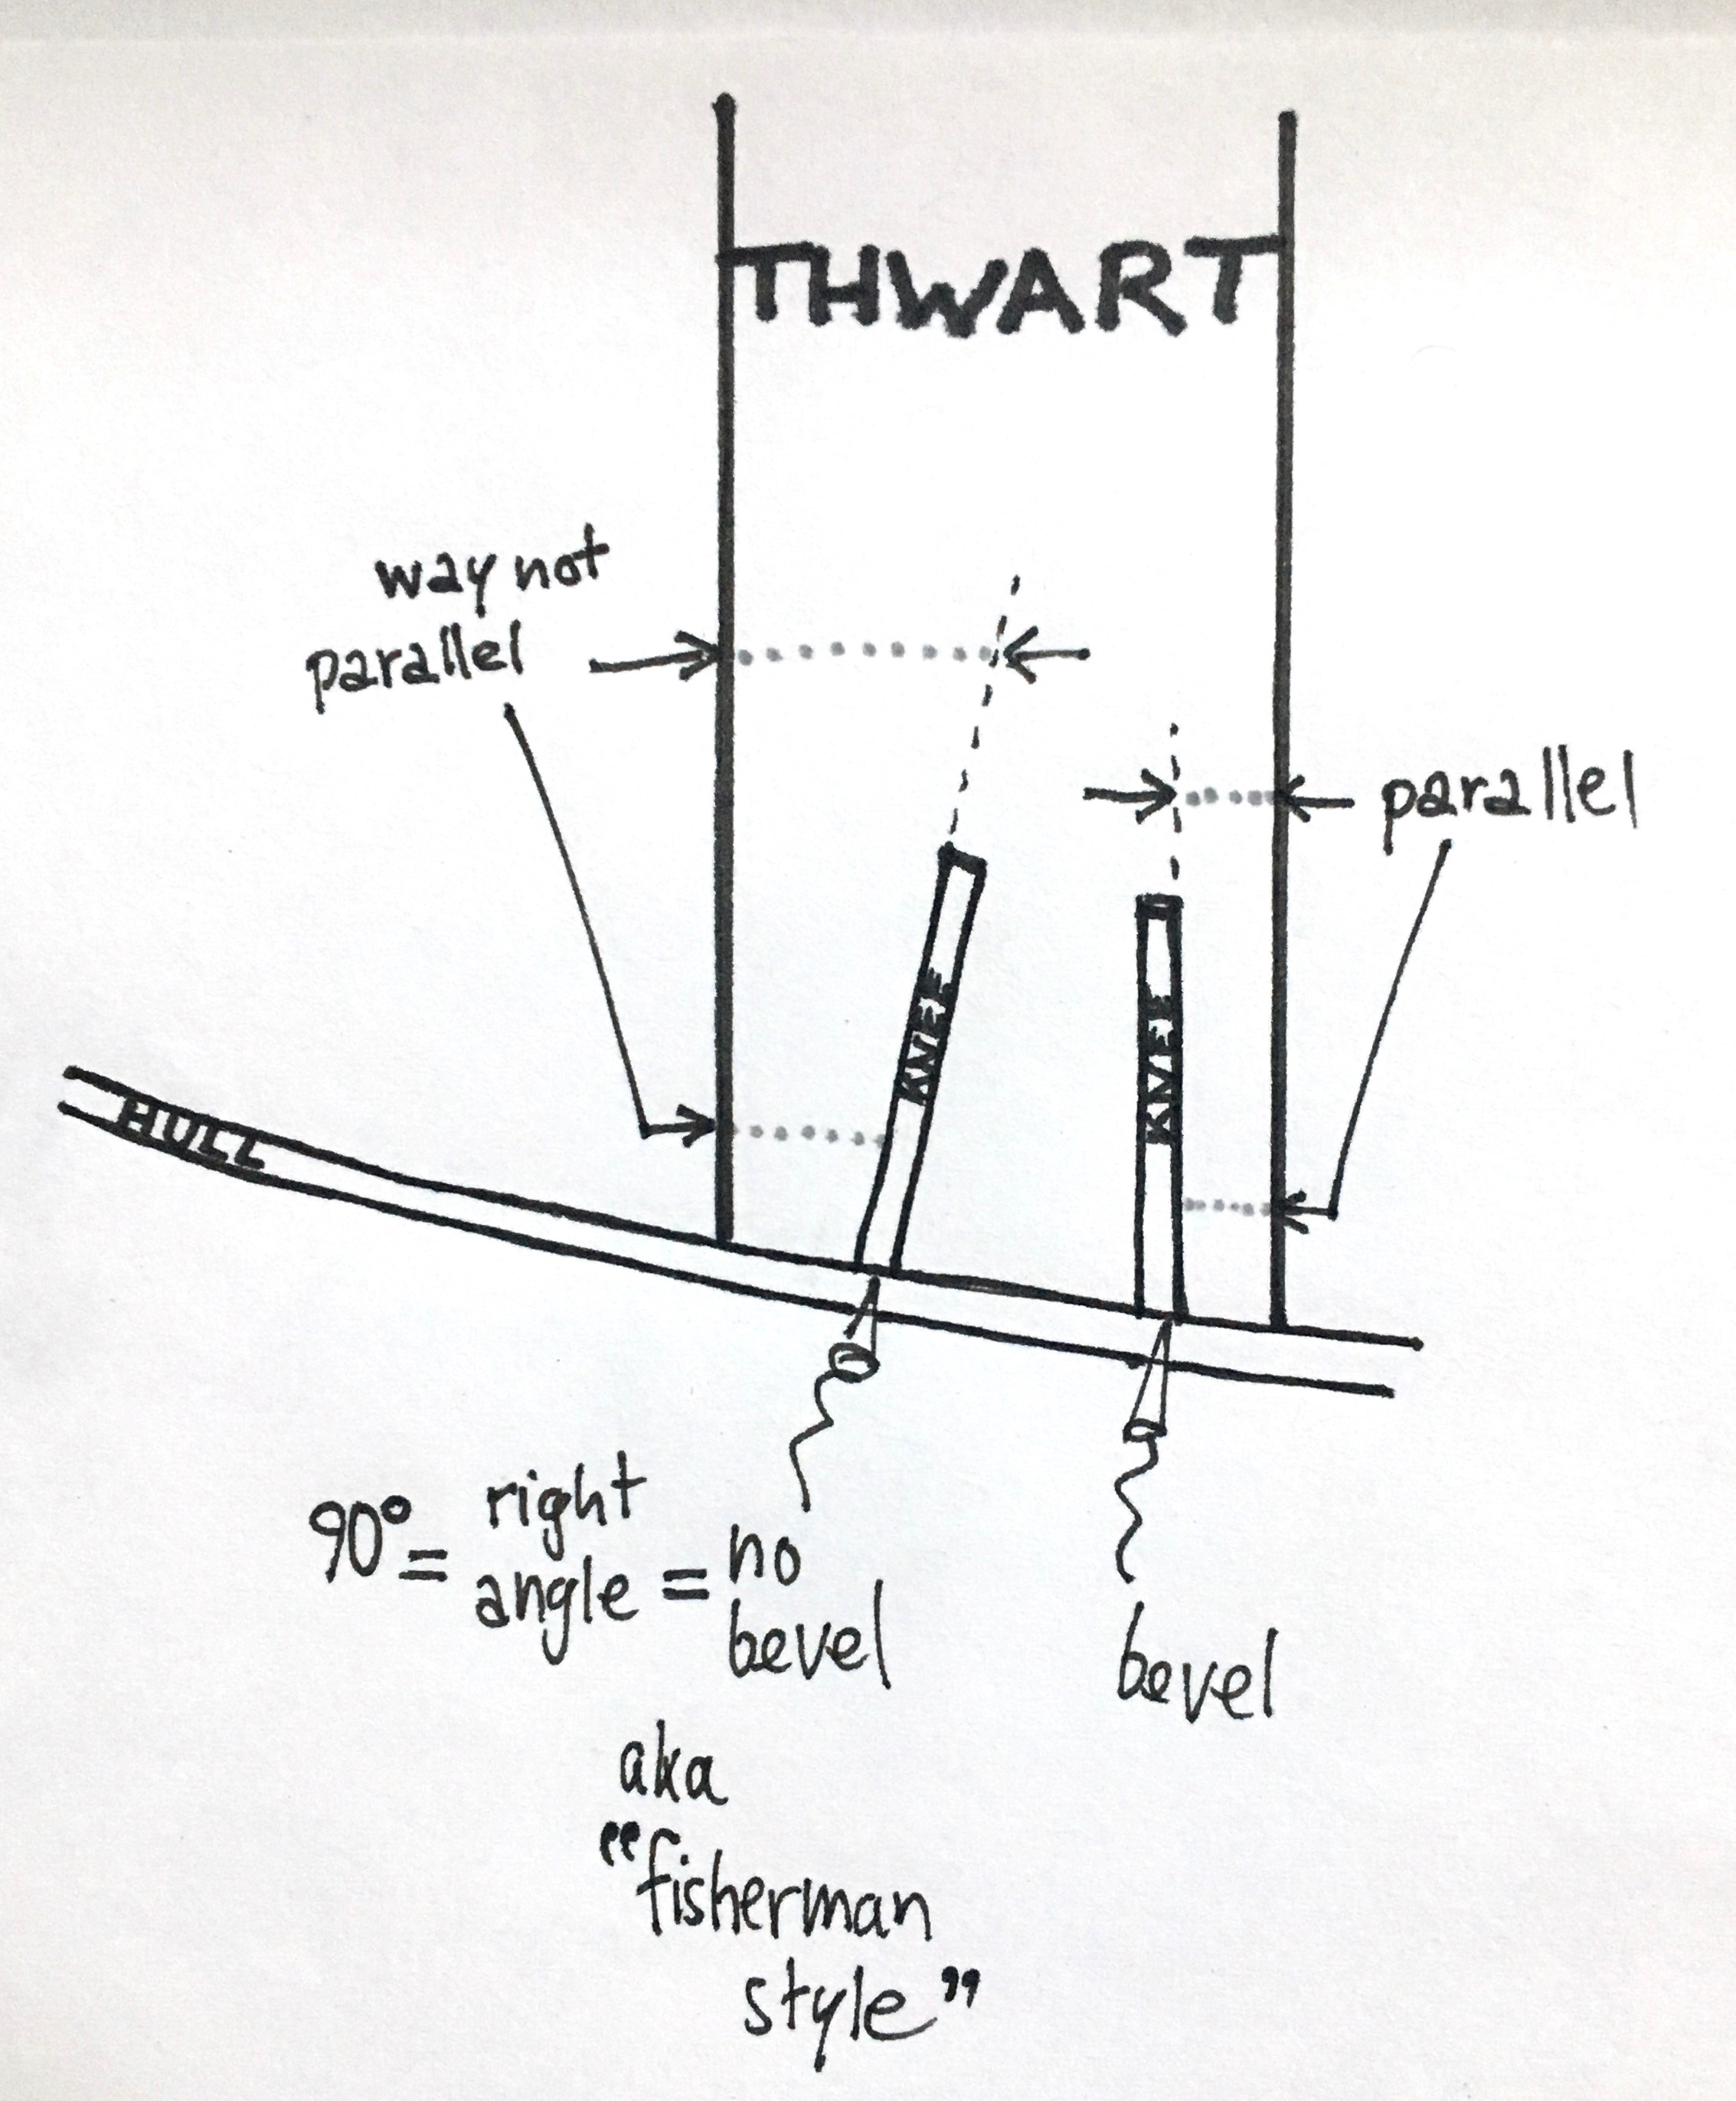 THWART
way not
parallel
parallel
KNEE
KNEE
HULL
90° = right angle = no bevel
bevel
aka
"fisherman
style"